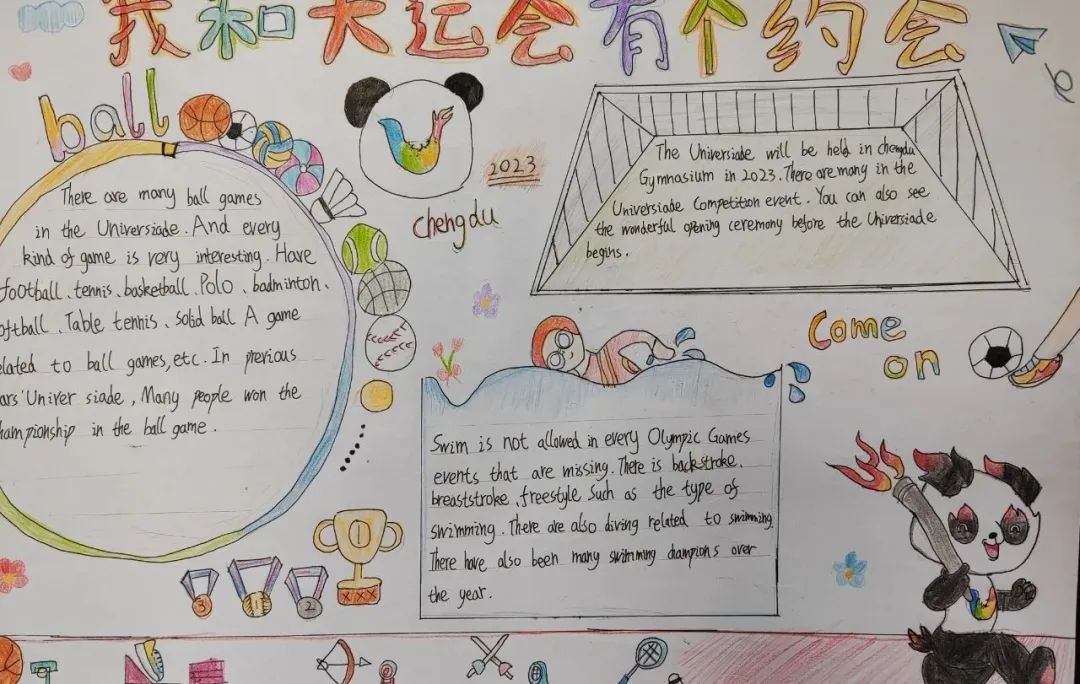 我和大运会有个约会
ball
There are many ball games
in the Universiade. And every
kind of game is very interesting. Have
football、tennis、basketball. Polo、badminton、
oftball、Table tennis、Solid ball A game
elated to ball games, etc. In previous
ars' Univer siade, Many people won the
hampionship in the ball game.
2023
chengdu
The Universiade will be held in chengdu
Gymnasium in 2023. There are many in the
Universiade Competition event. You can also see
the wonderful opening ceremony before the Universiade
begins.
Come
on
Swim is not allowed in every Olympic Games
events that are missing. There is backstroke、
breaststroke、freestyle such as the type of
swimming. There are also diving related to swimming.
There have also been many swimming champions over
the year.
1
3
1
2
XXX